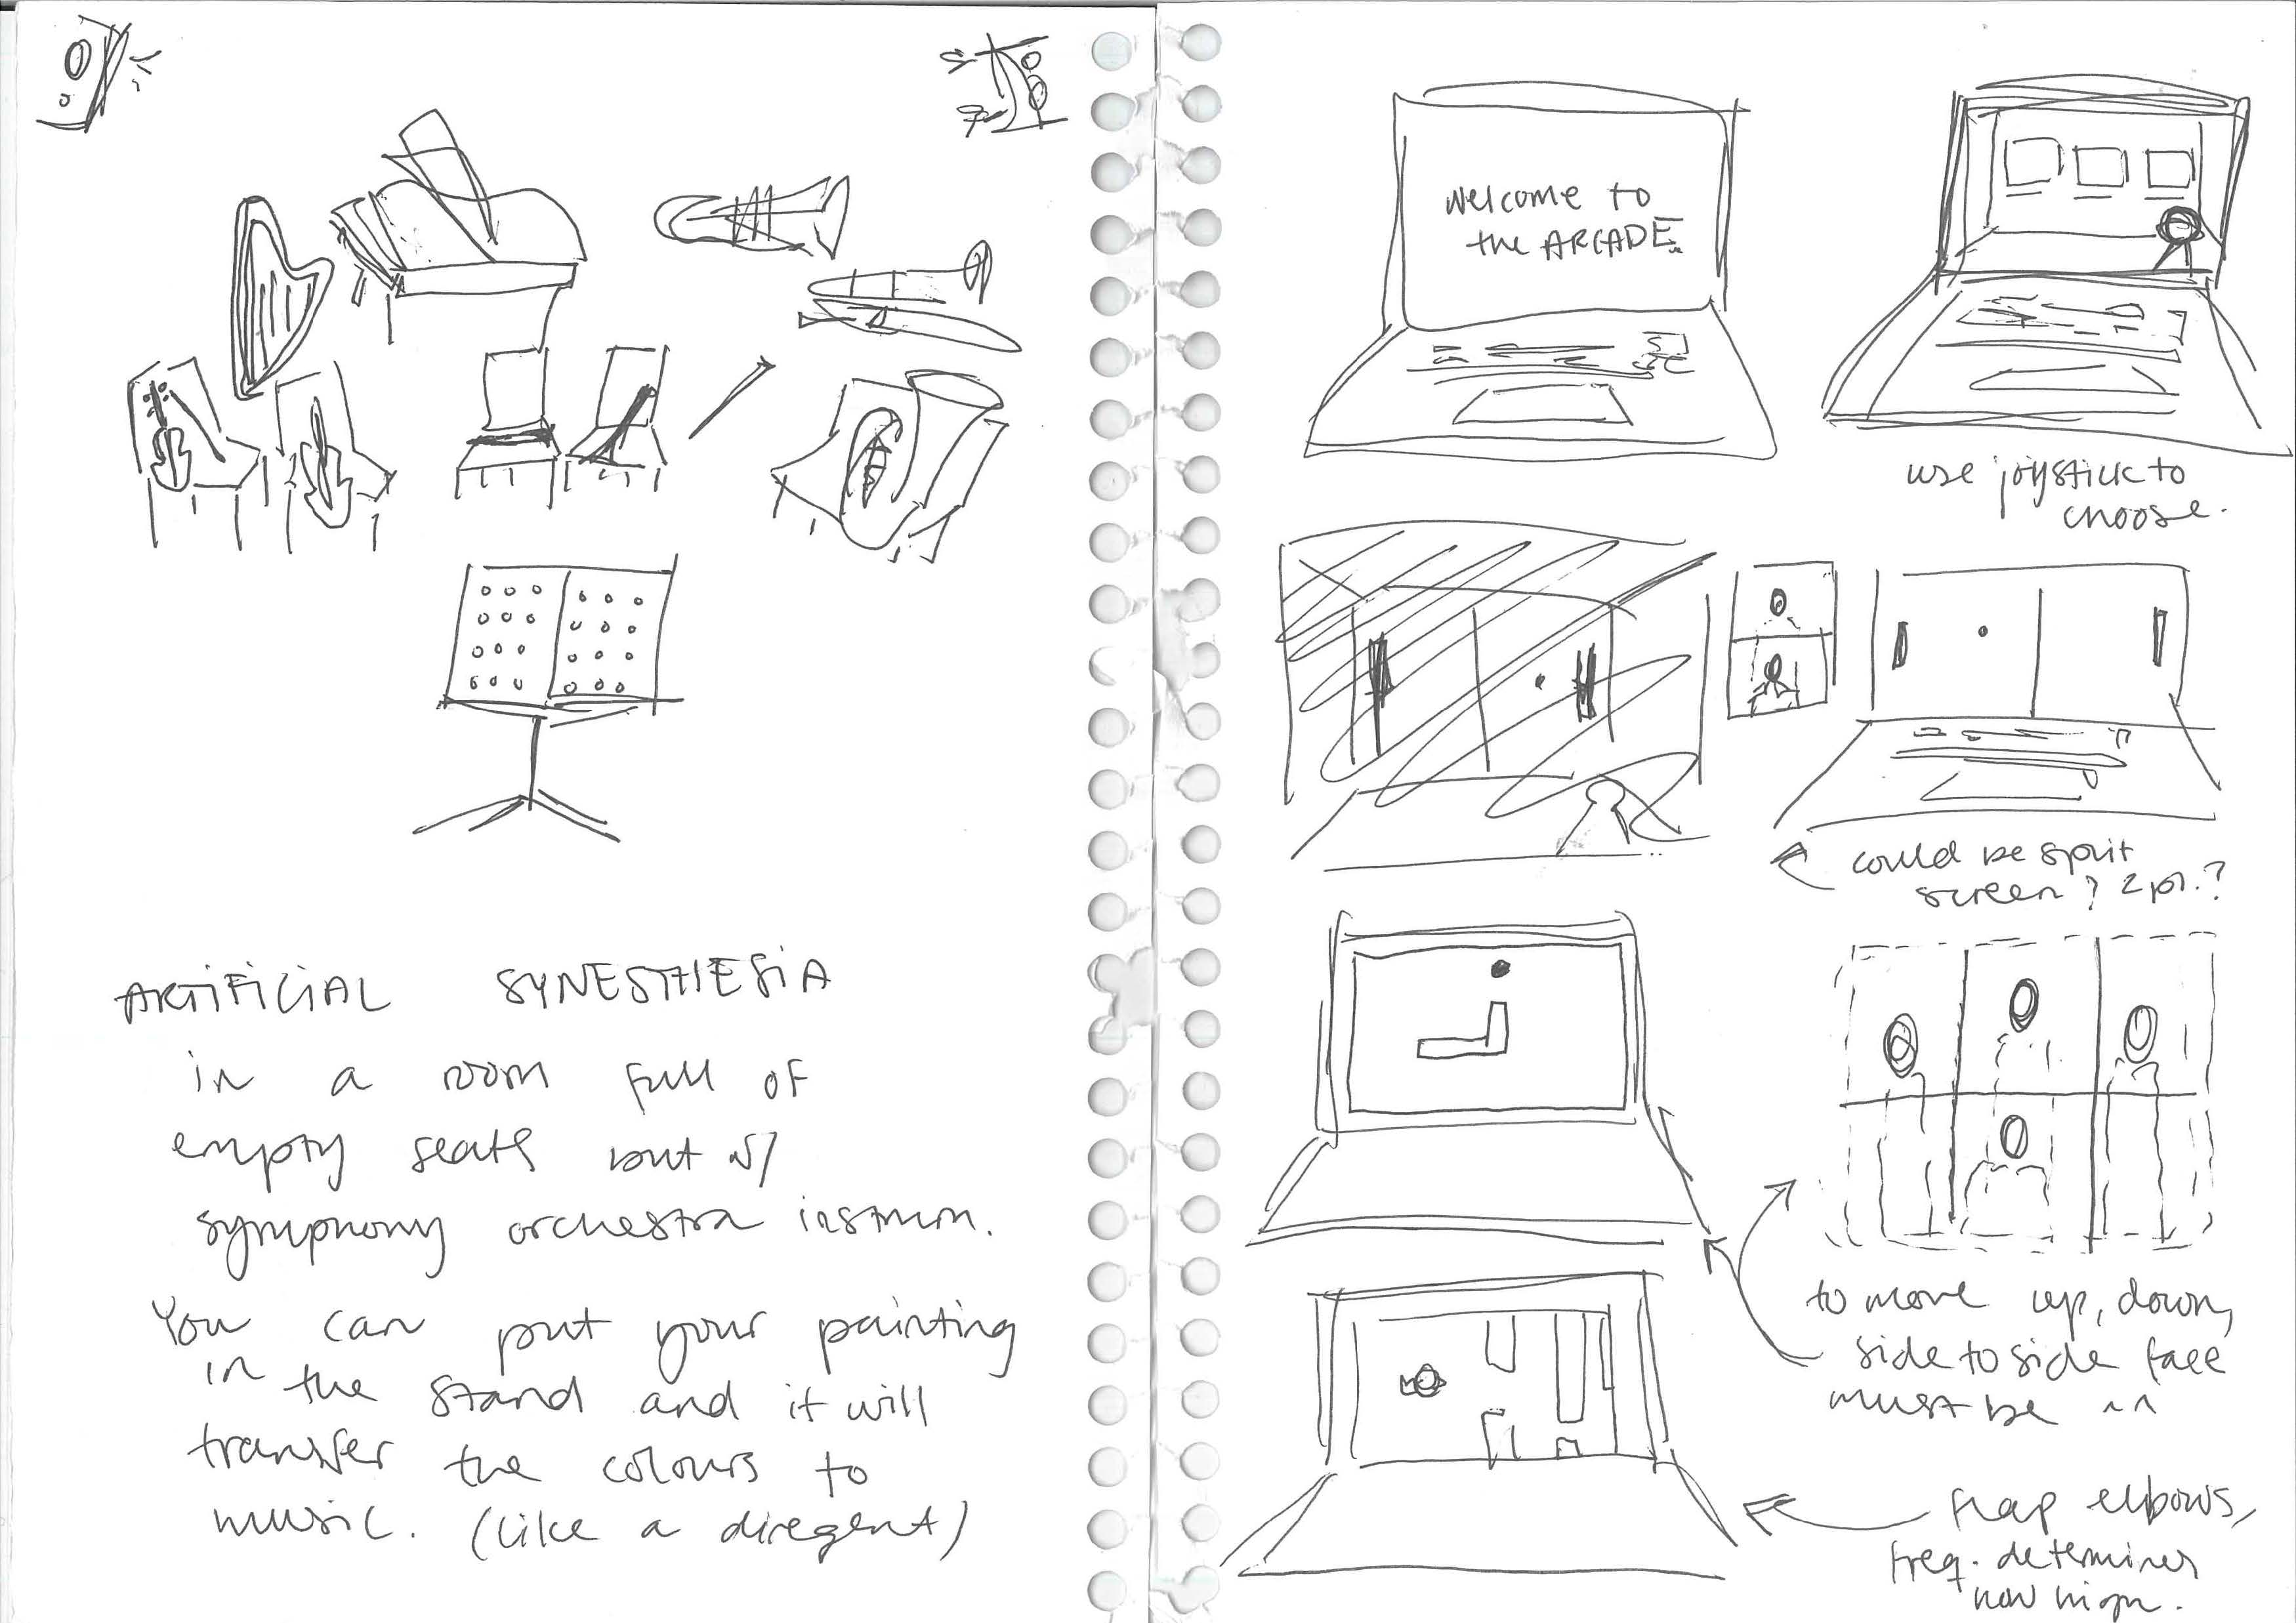 ARTIFICIAL SYNESTHESIA
in a room full of
empty seats but w/
symphony orchestra instrum.
You can put your painting
in the stand and it will
transfer the colours to
music. (like a diregent)
Welcome to
the ARCADE
use joystick to
choose.
could be split
screen? 2 pl.?
to move up, down,
side to side face
must be in
flap elbows,
freq. determines
how high.